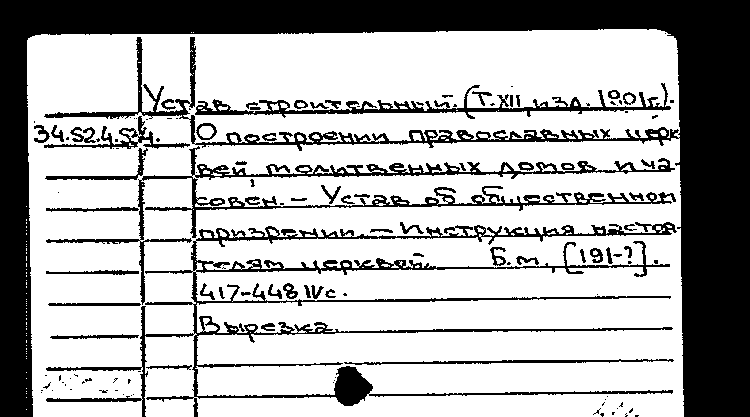 Устав строительный. (Т. XII, изд. 1901г.).
34.52.4.524. О построении православных церк
вей, молитвенных домов и ча-
совен. – Устав об общественном
призрении. – Инструкция настоя-
телям церквей. Б.м., [191-?].
417-448, IV с.
Вырезка.